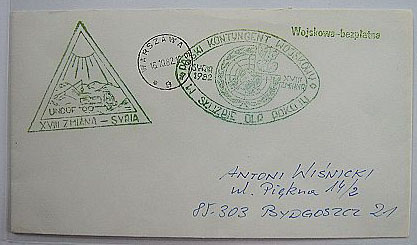 Wojskowa-bezpłatna
WARSZAWA
16.10.82
9
POLSKI KONTYNGENT WOJSKOWY
SYRIA
1982
XVIII
ZMIANA
W SŁUŻBIE DLA POKOJU
UNDOF
XVIII ZMIANA - SYRIA
ANTONI WIŚNICKI
ul. Piękna 14/2
85-303 BYDGOSZCZ 21